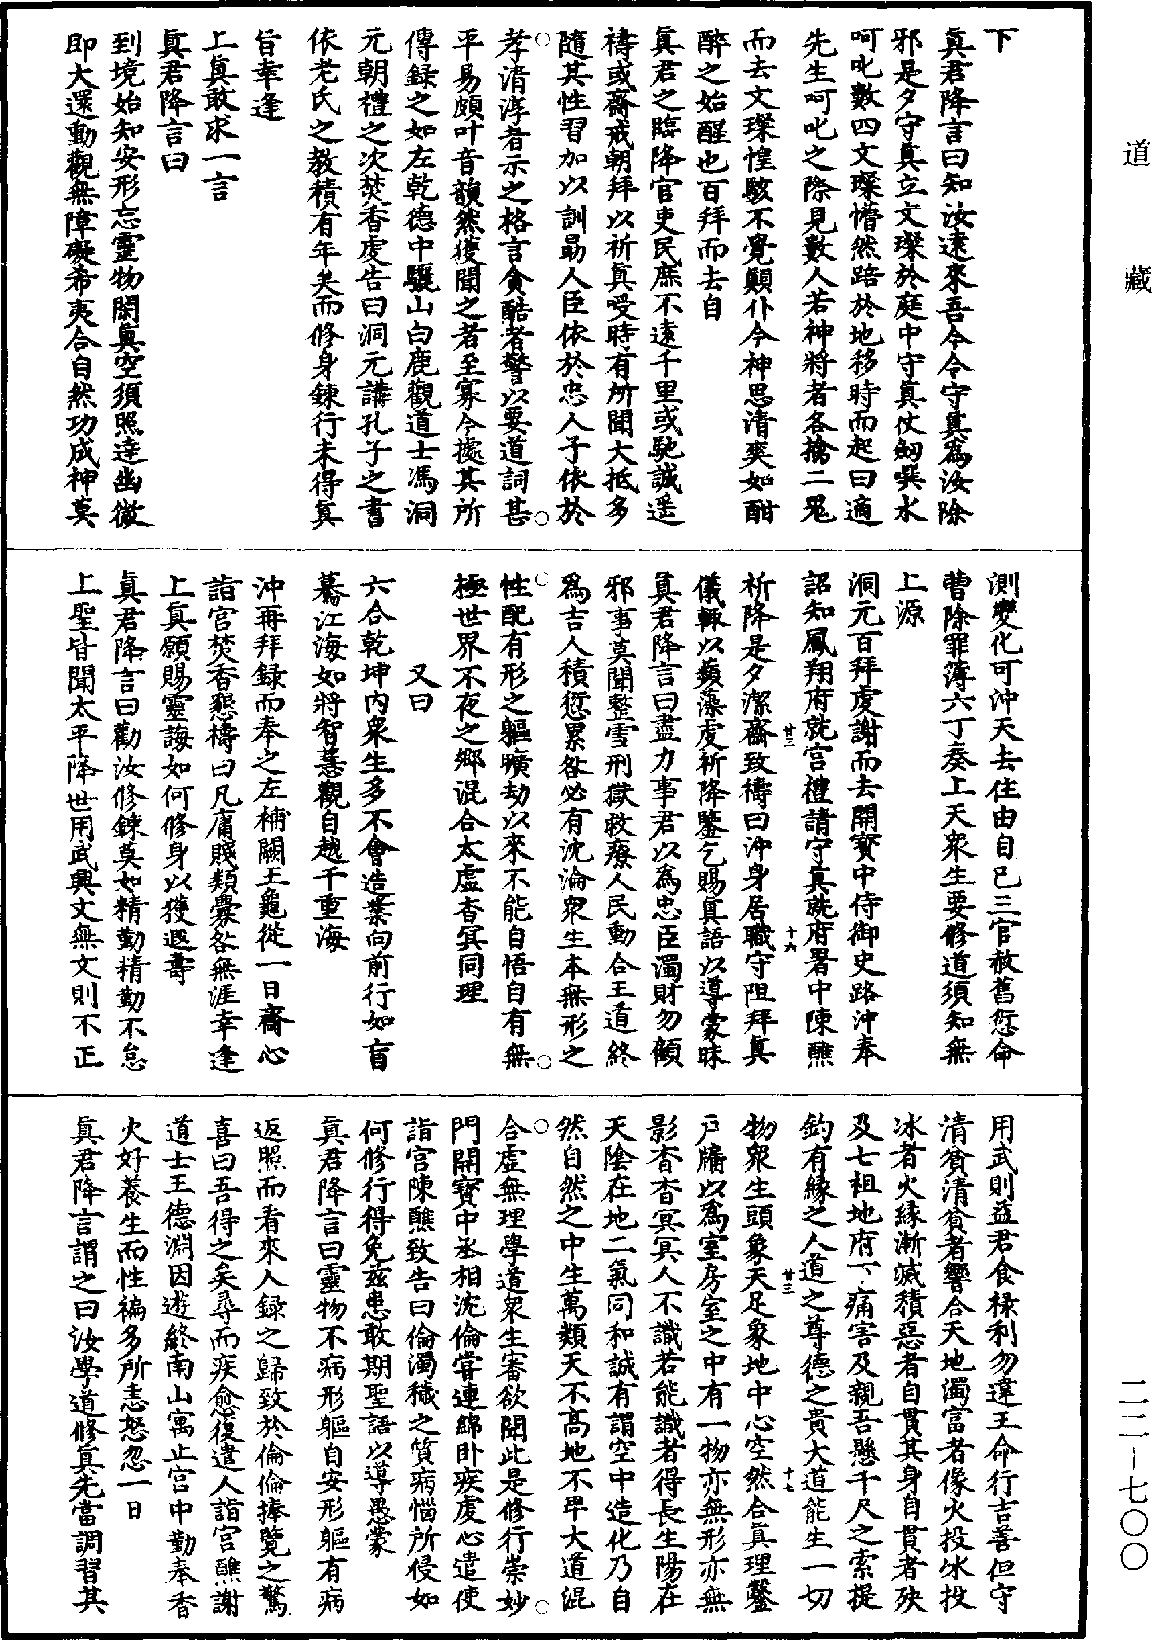 道藏
下
真君降言曰知汝遠來吾今令守真爲汝除
邪是夕守真立文璨於庭中守真仗劒噀水
呵叱數四文璨懵然踣於地移時而起曰適
先生呵叱之際見數人若神將者各擒二鬼
而去文璨惶駭不覺顛仆今神思清爽如酣
醉之始醒也百拜而去自
真君之臨降官吏民庶不遠千里或馳誠遥
禱或齋戒朝拜以祈真受時有所聞大抵多
隨其性習加以訓勗人臣依於忠人子依於
孝清淳者示之格言貪酷者警以要道詞甚
平易頗叶音韻然獲聞之者至寡今據其所
傳録之如左乾德中驪山白鹿觀道士馮洞
元朝禮之次焚香虔告曰洞元講孔子之書
依老氏之教積有年矣而修身鍊行未得真
旨幸逢
上真敢求一言
真君降言曰
到境始知安形忘靈物閑真空須照達幽微
即大還動觀無障礙希夷合自然功成神莫
測變化可沖天去住由自己三官赦舊愆命
曹除罪簿六丁奏上天衆生要修道須知無
上源
洞元百拜虔謝而去開寶中侍御史路沖奉
詔知鳳翔府就宮禮請守真就府署中陳醮
祈降是夕潔齋致禱曰沖身居職守阻拜真
儀輒以蘋藻虔祈降鑒乞賜真語以導蒙昧
真君降言曰盡力事君以爲忠臣濁財勿顧
邪事莫聞整雪刑獄救療人民動合王道終
爲吉人積愆累咎必有沈淪衆生本無形之
性配有形之軀曠劫以來不能自悟自有無
極世界不夜之鄉混合太虛杳冥同理
又曰
六合乾坤内衆生多不會造業向前行如盲
驀江海如將智慧觀自越千重海
沖再拜録而奉之左補闕王龜從一日齋心
詣宮焚香懇禱曰凡庸賤類釁咎無涯幸逢
上真願賜靈誨如何修身以獲遐壽
真君降言曰勸汝修鍊莫如精勤精勤不怠
上聖皆聞太平降世用武興文無文則不正
用武則益君食祿利勿違王命行吉善但守
清貧清貧者響合天地濁富者像火投冰投
冰者火緣漸滅積惡者自貫其身自貫者殃
及七祖地府下痛害及親吾懸千尺之索提
釣有緣之人道之尊德之貴大道能生一切
物衆生頭象天足象地中心空然合真理鑿
戶牖以爲室房室之中有一物亦無形亦無
影杳杳冥冥人不識若能識者得長生陽在
天陰在地二氣同和誠有謂空中造化乃自
然自然之中生萬類天不高地不卑大道混
合虛無理學道衆生審欲聞此是修行崇妙
門開寶中丞相沈倫嘗連綿卧疾虔心遣使
詣宮陳醮致告曰倫濁穢之質病惱所侵如
何修行得免兹患敢期聖語以導愚蒙
真君降言曰靈物不病形軀自安形軀有病
返照而看來人録之歸致於倫倫捧覽之驚
喜曰吾得之矣尋而疾愈復遣人詣宮醮謝
道士王德淵因遊終南山寓止宮中勤奉香
火好養生而性褊多所恚怒忽一日
真君降言謂之曰汝學道修真先當調習其
廿三
十六
廿三
十七
二二—七〇〇